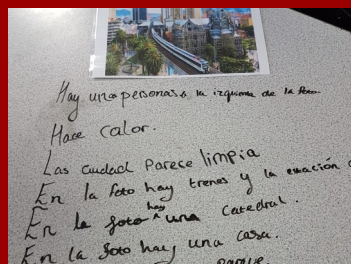 Hay unas personas a la izquierda de la foto.
Hace calor.
Las ciudad parece limpia
En la foto hay trenes y la estación
En la foto hay una catedral.
En la foto hay una casa.
parque.